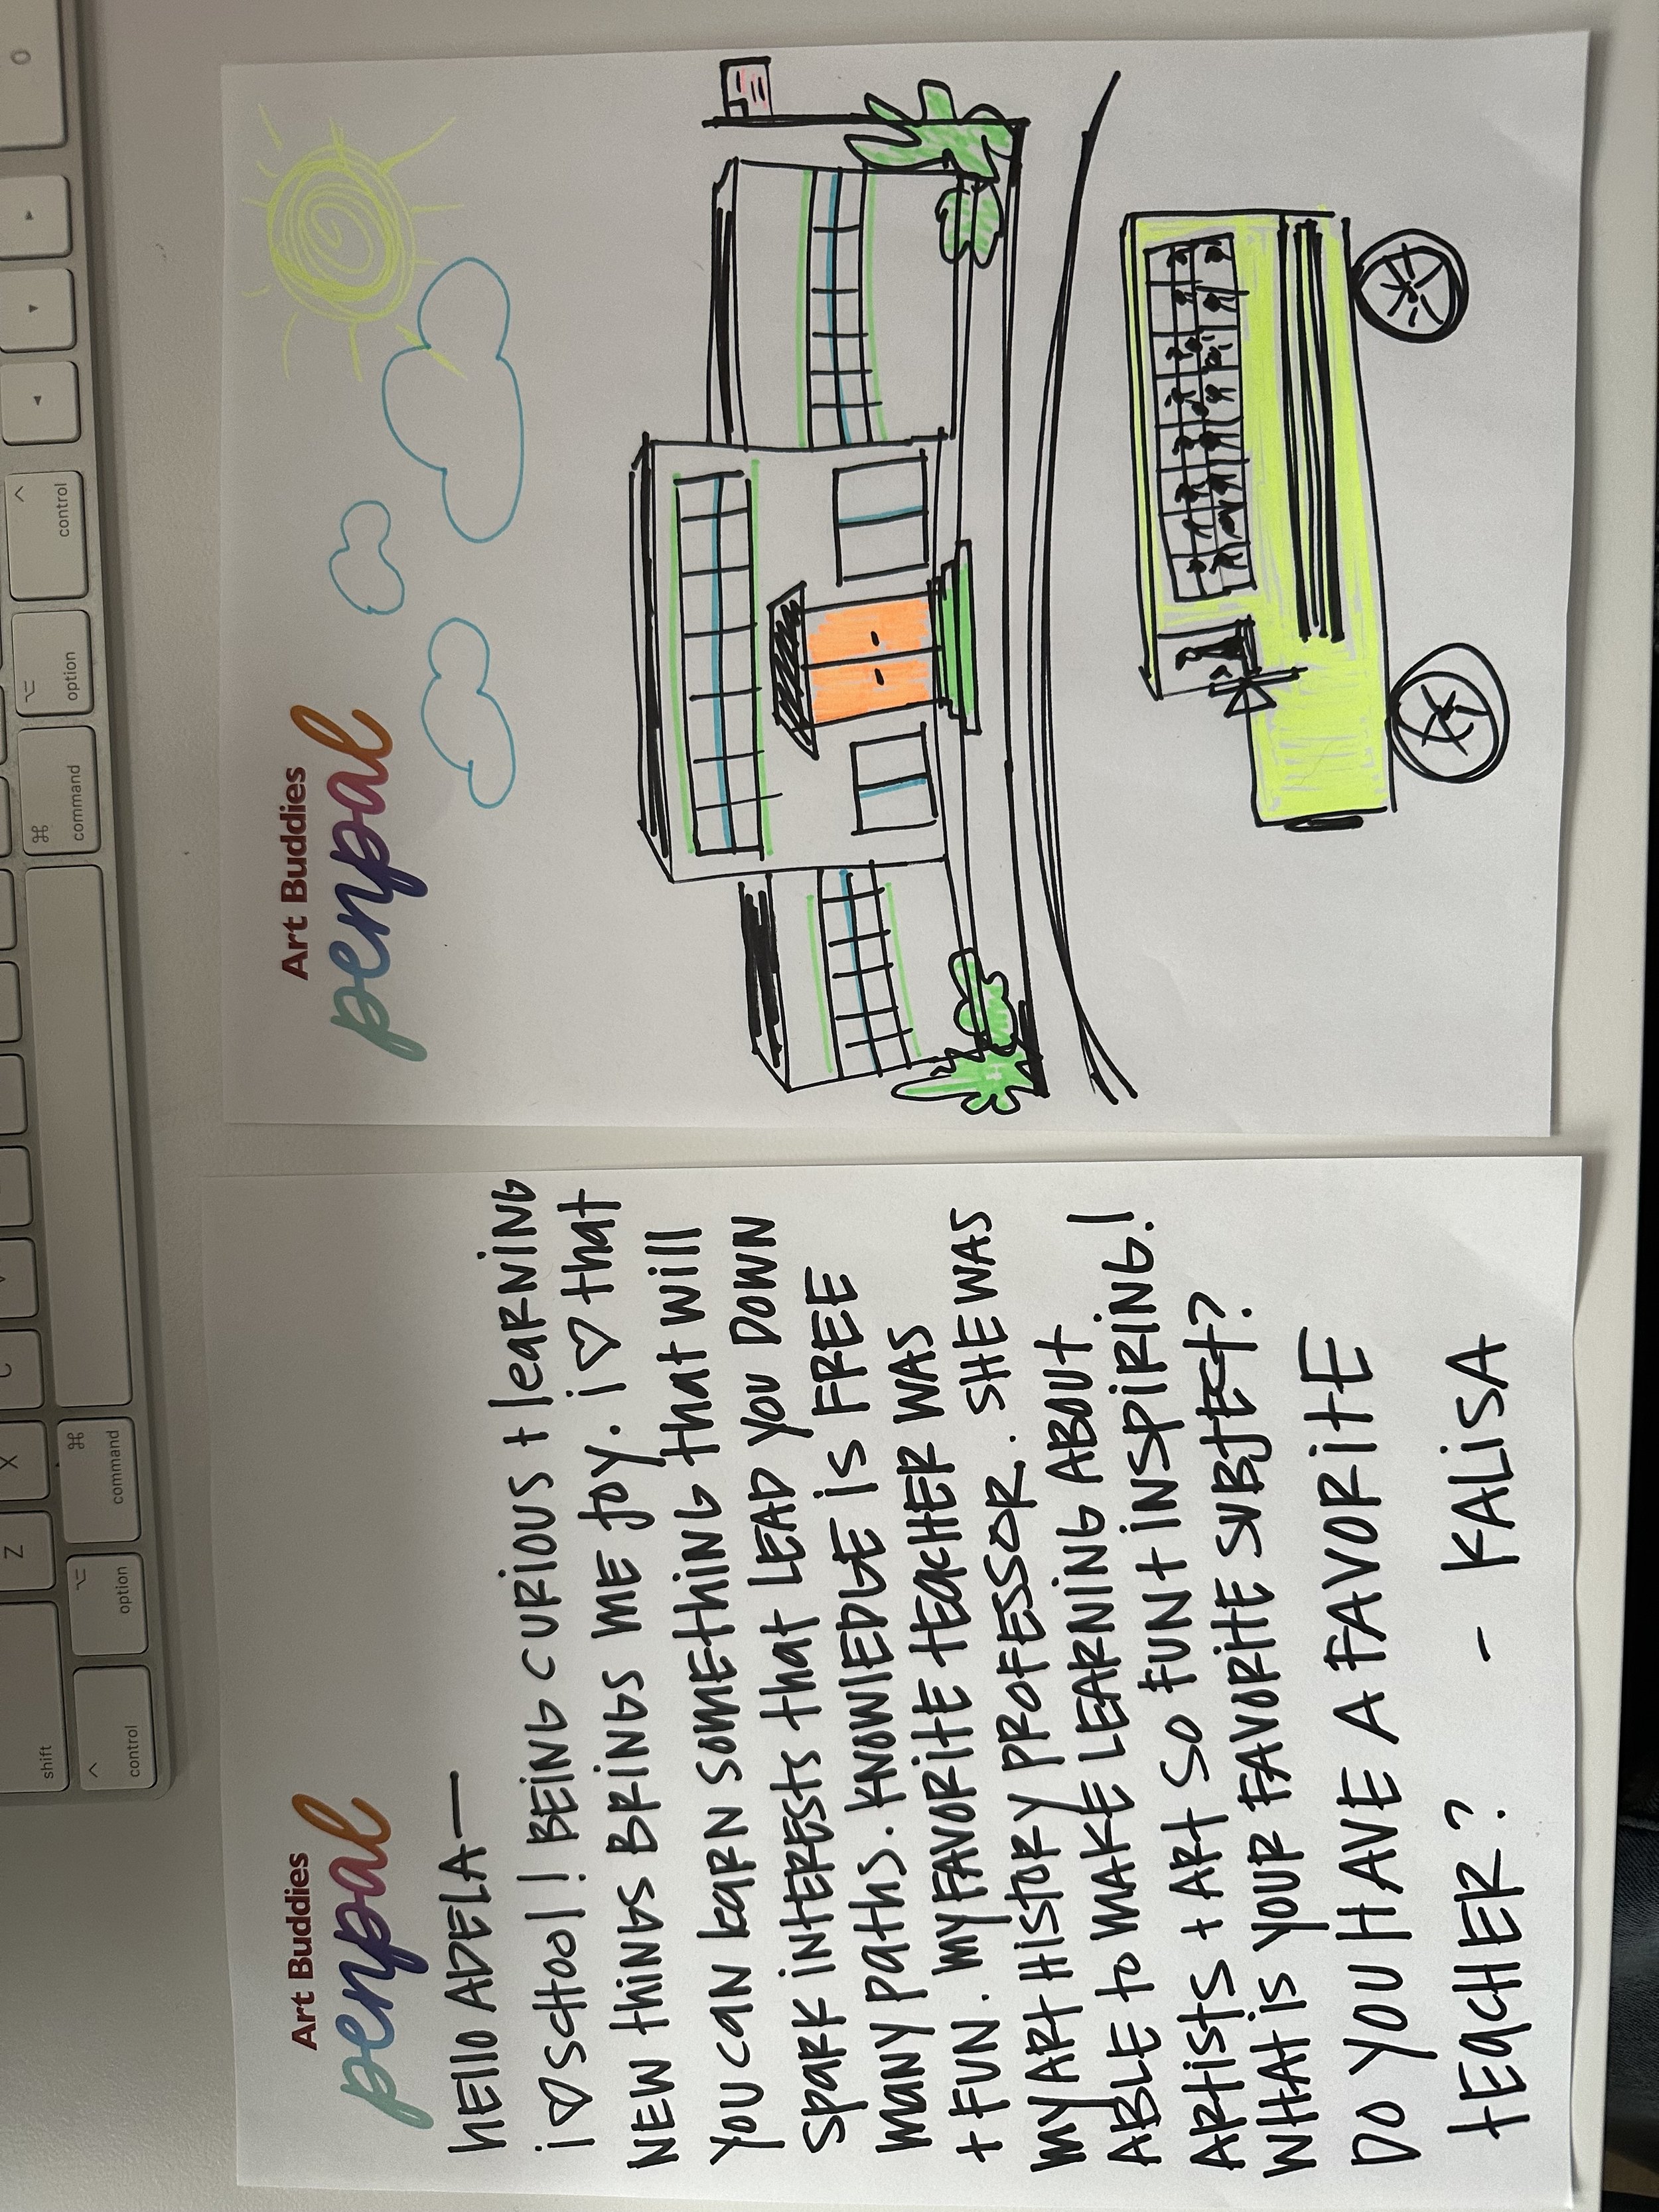 Art Buddies
penpal
HEllO ADELA—
i ♡ SCHOOl! BEING CURIOUS + learning
NEW thiNGS BRINGS ME JOY. i ♡ that
YOU CAN learn SOMEthiNG that will
SPARK INTERESTS that LEAD YOU DOWN
MANY PATHS. KNOWlEDGE iS FREE
+ FUN. MY FAVORITE TEACHER WAS
MY ART HISTORY PROFESSOR. SHE WAS
ABLE to MAKE LEARNING ABOUT
ARTISTS + ART SO FUN + INSPIRING!
WHAT iS YOUR FAVORITE SUBJECT?
DO YOU HAVE A FAVORITE
TEACHER? - KALISA
Art Buddies
penpal
shift
Z
X
C
control
option
command
command
option
control
0